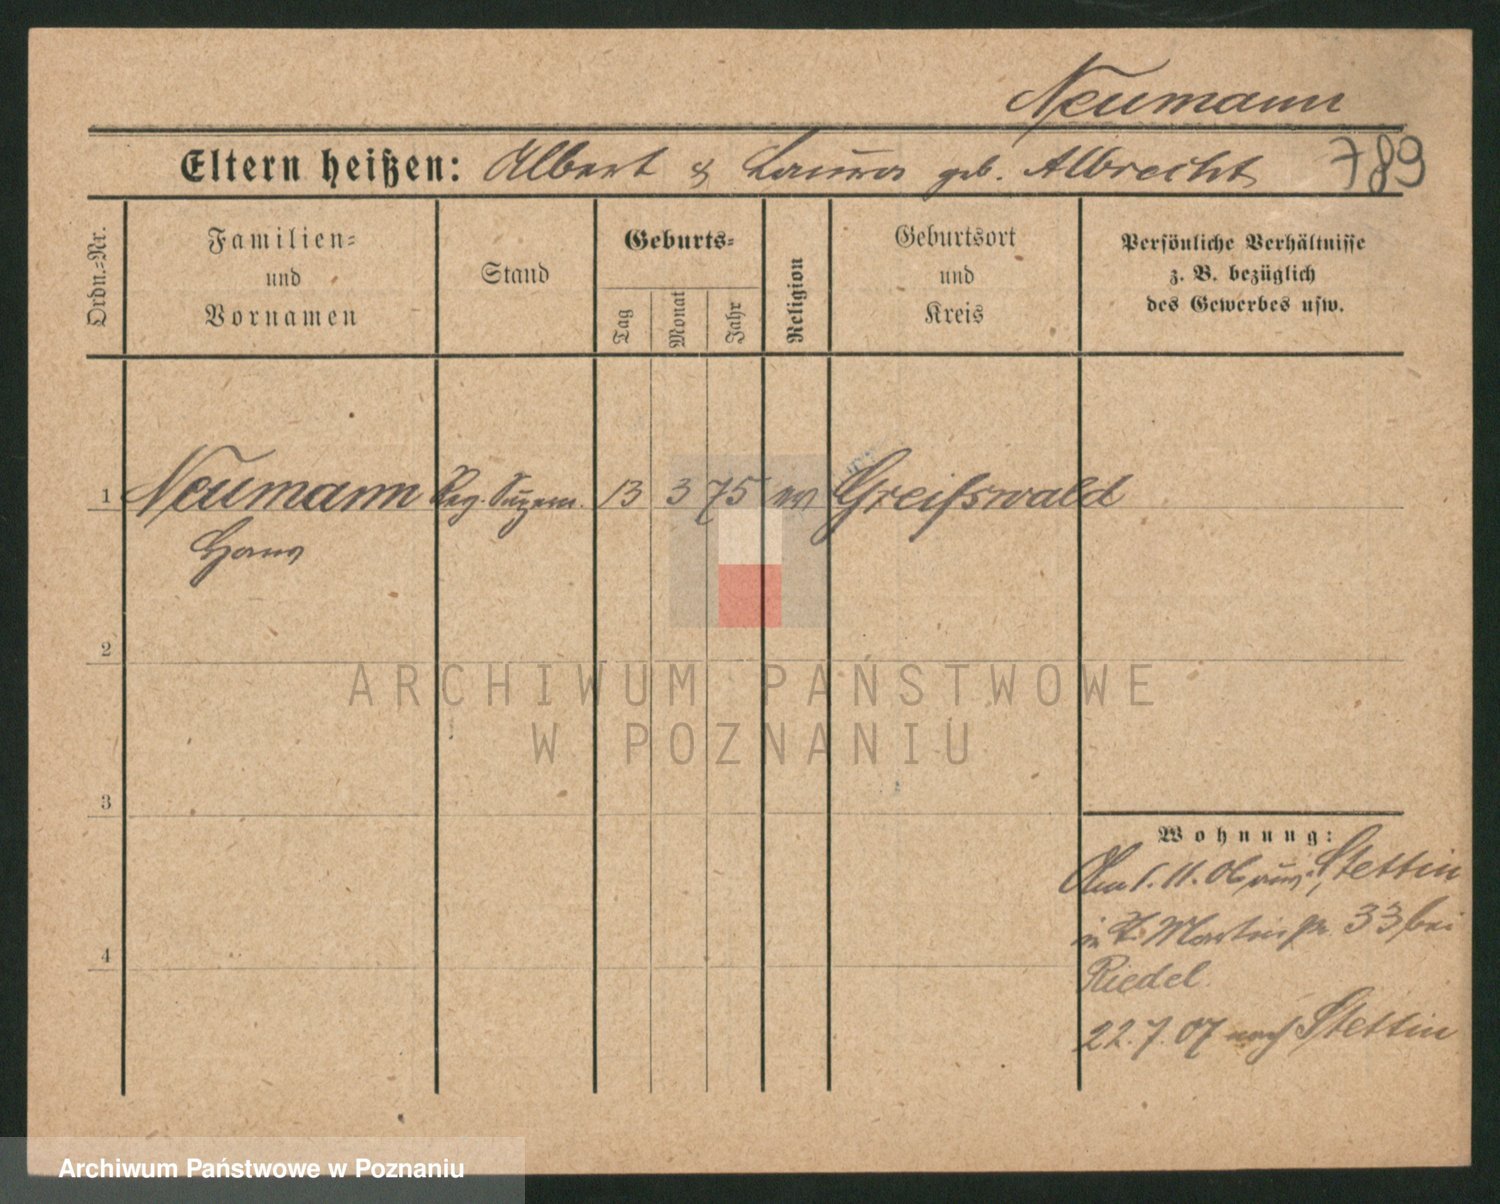 Neumann
Eltern heißen: Albert & Laura geb. Albrecht 789
Ordn.-Nr.
Familien-
und
Vornamen
Stand
Geburts-
Tag
Monat
Jahr
Religion
Geburtsort
und
Kreis
Persönliche Verhältnisse
z. B. bezüglich
des Gewerbes usw.
1 Neumann Reg. 13 3 75 ev Greifswald
Hans
2
ARCHIWUM PAŃSTWOWE
W POZNANIU
3
Wohnung:
Am 1.11.06 aus Stettin
in 33 bei
Riedel.
4
22.7.07 nach Stettin
Archiwum Państwowe w Poznaniu